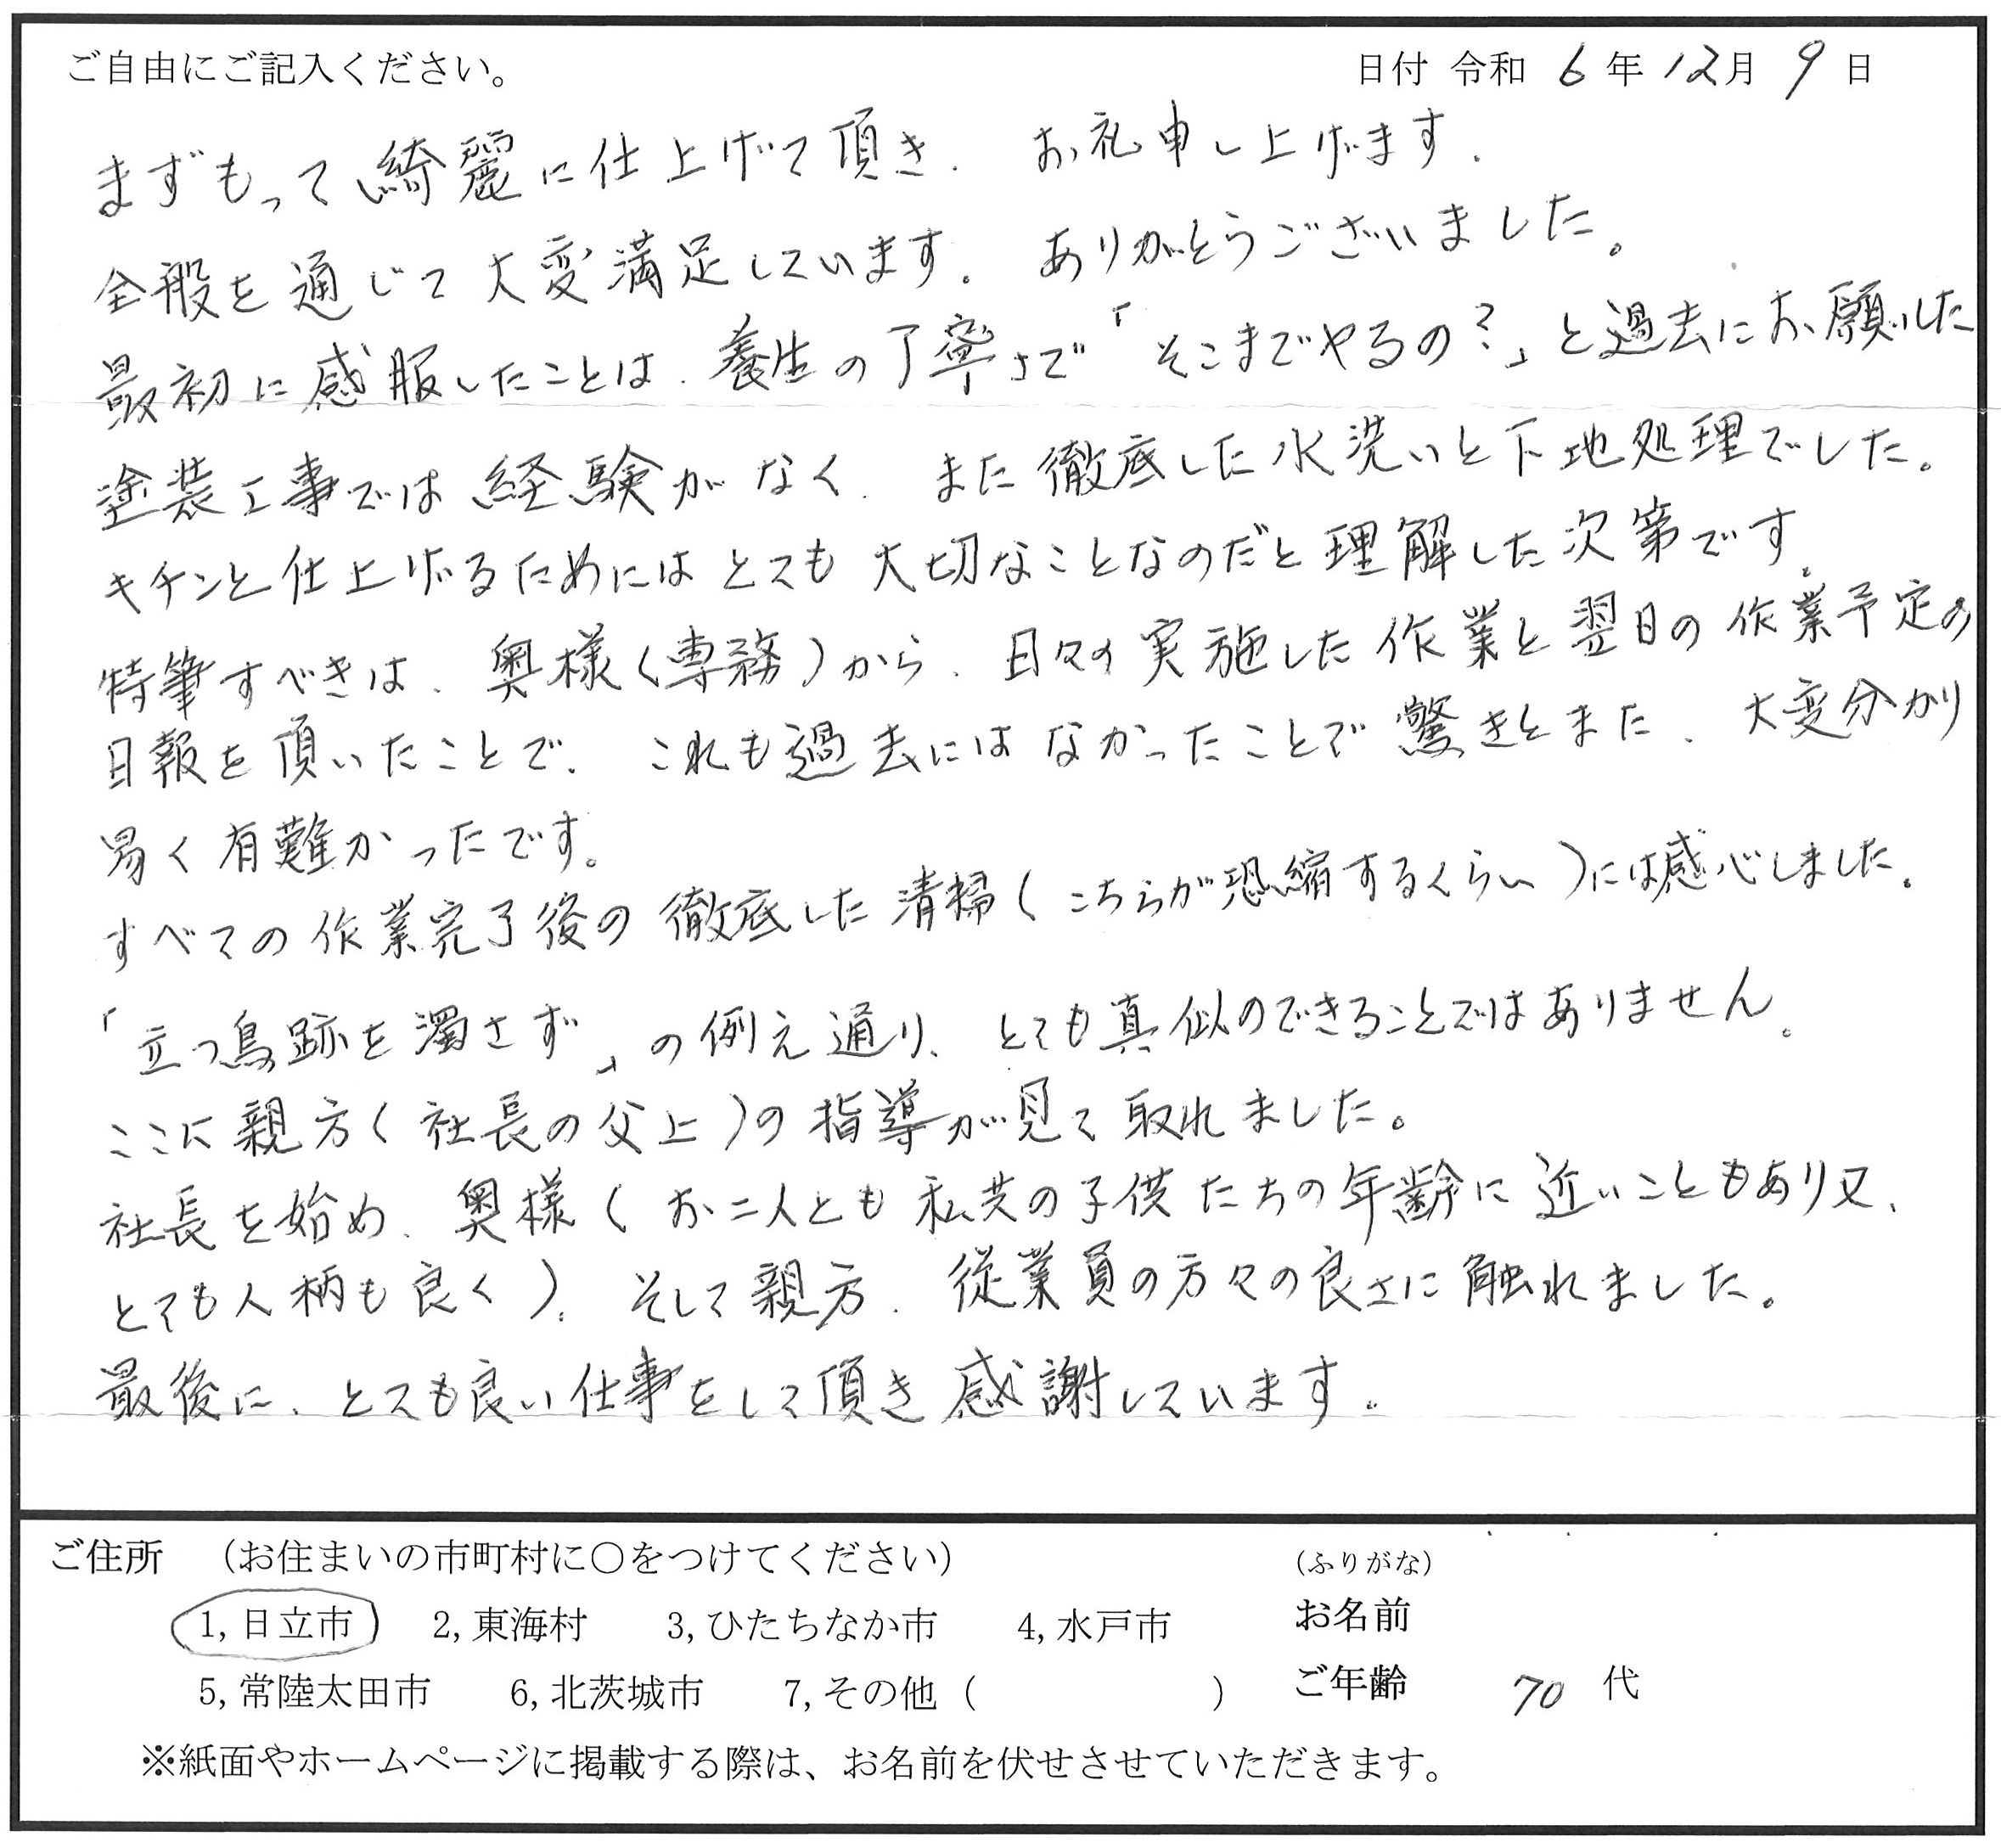 ご自由にご記入ください。 日付 令和 6 年 12月 9 日
まずもって綺麗に仕上げて頂き、お礼申し上げます。
全般を通じて大変満足しています。ありがとうございました。
最初に感服したことは、養生の丁寧さで「そこまでやるの?」と過去にお願いした
塗装工事では経験がなく、また徹底した水洗いと下地処理でした。
キチンと仕上げるためにはとても大切なことなのだと理解した次第です。
特筆すべきは、奥様(専務)から、日々の実施した作業と翌日の作業予定の
日報を頂いたことで、これも過去にはなかったことで驚きとまた、大変分かり
易く有難かったです。
すべての作業完了後の徹底した清掃(こちらが恐縮するくらい)には感心しました。
「立つ鳥跡を濁さず」の例え通り、とても真似のできることではありません。
ここに親方(社長の父上)の指導が見て取れました。
社長を始め、奥様(お二人とも私共の子供たちの年齢に近いこともあり又、
とても人柄も良く)、そして親方、従業員の方々の良さに触れました。
最後に、とても良い仕事をして頂き感謝しています。
ご住所 (お住まいの市町村に○をつけてください) (ふりがな)
1,日立市 2,東海村 3,ひたちなか市 4,水戸市 お名前
5,常陸太田市 6,北茨城市 7,その他 ( ) ご年齢 70 代
※紙面やホームページに掲載する際は、お名前を伏せさせていただきます。